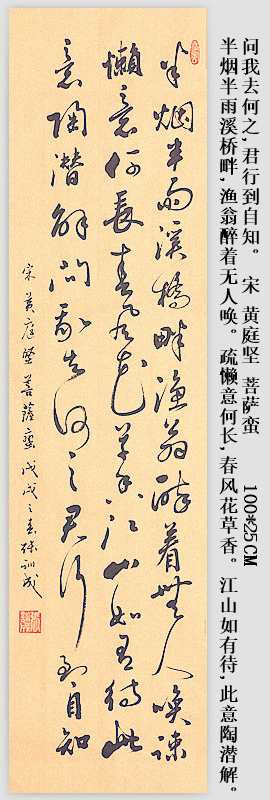 半烟半雨溪橋畔渔翁醉着無人唤疎
懶意何長春風花草香江山如有待此
意陶潜解問我去何之君行到自知
宋黄庭堅菩薩蠻戊戌之春徐訓成
半烟半雨溪桥畔,渔翁醉着无人唤。疏懒意何长,春风花草香。江山如有待,此意陶潜解。
问我去何之,君行到自知。 宋 黄庭坚 菩萨蛮 100*25CM